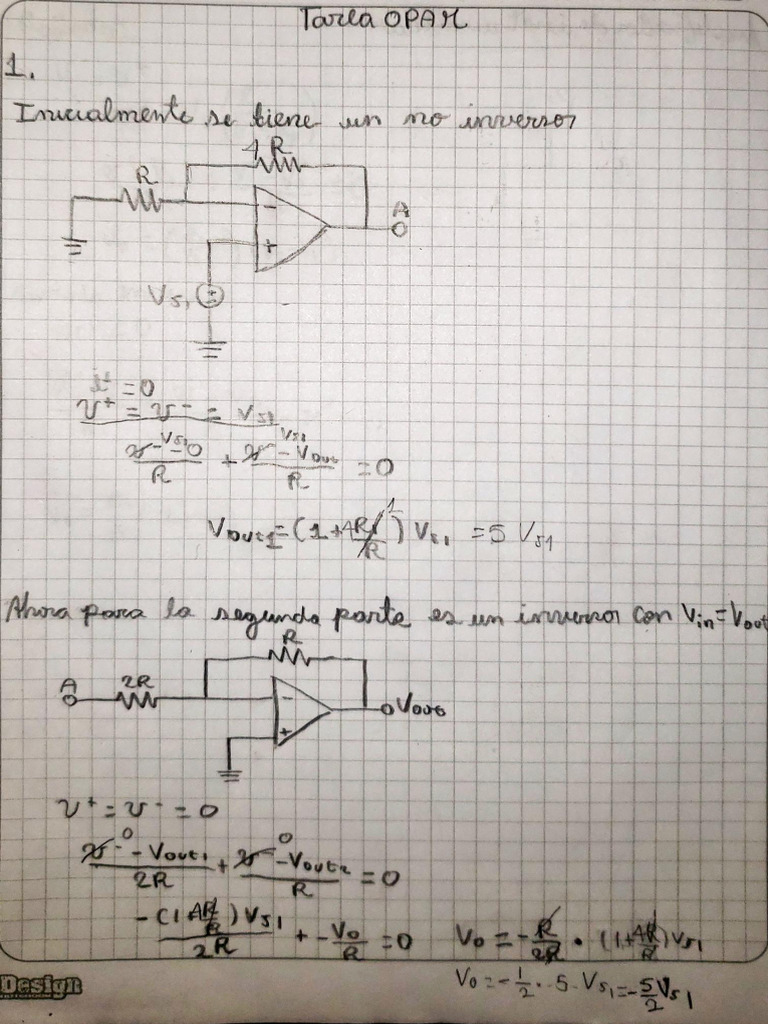 Tarea OPAM
1.
Inicialmente se tiene un no inversor
4R
R
A
-
+
Vs1
i+ = 0
v+ = v- = Vs1
v- Vs1 - 0 / R + v- Vs1 - Vout / R = 0
Vout1 = (1 + 4R/R) Vs1 = 5 Vs1
Ahora para la segunda parte es un inversor con Vin = Vout
R
A
2R
-
+
Vout
v+ = v- = 0
v- 0 - Vout1 / 2R + v- 0 - Vout2 / R = 0
-(1 + 4R/R) Vs1 / 2R + -Vo/R = 0
Vo = -R/2R · (1 + 4R/R) Vs1
Vo = -1/2 · 5 · Vs1 = -5/2 Vs1
Design